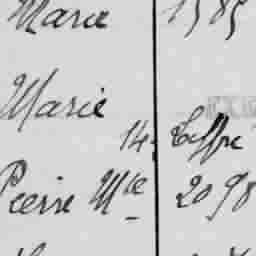 Marie 1585
Marie
14.
Pierre Mle 2098